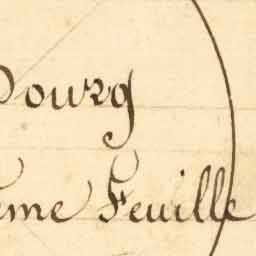 Bourg
ème Feuille